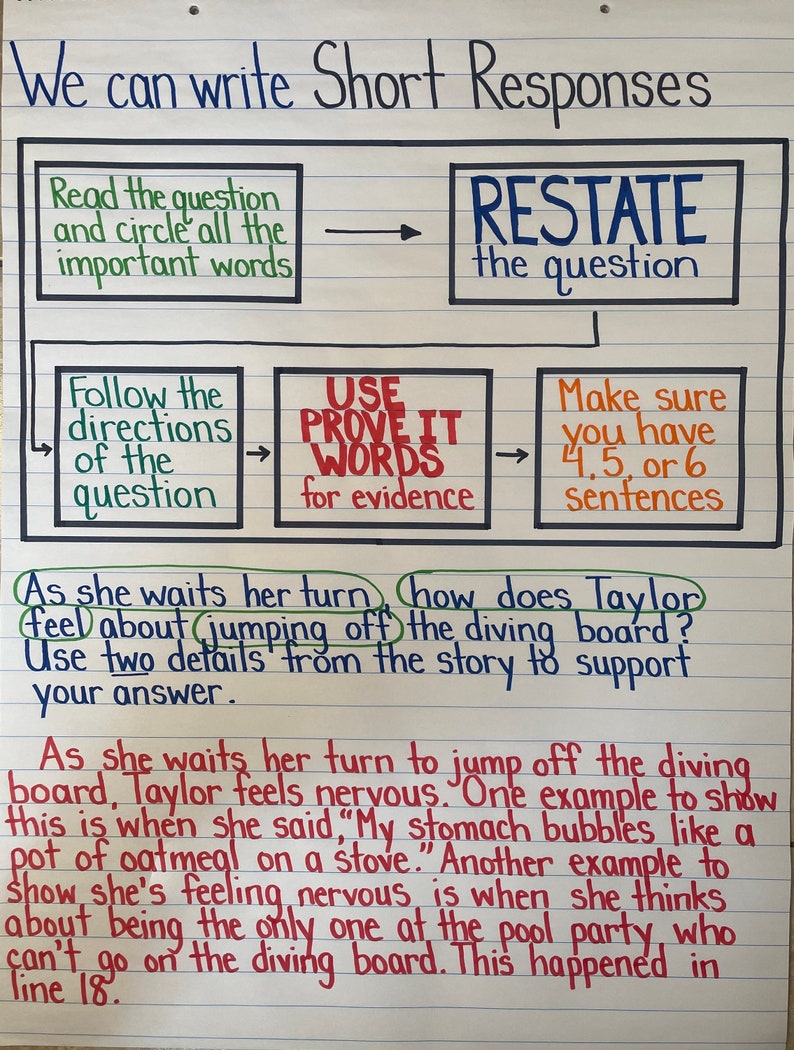 We can write Short Responses
Read the question
and circle all the
important words
RESTATE
the question
Follow the
directions
of the
question
USE
PROVE IT
WORDS
for evidence
Make sure
you have
4, 5, or 6
sentences
As she waits her turn, how does Taylor
feel about jumping off the diving board?
Use two details from the story to support
your answer.
As she waits her turn to jump off the diving
board, Taylor feels nervous. One example to show
this is when she said, "My stomach bubbles like a
pot of oatmeal on a stove." Another example to
show she's feeling nervous is when she thinks
about being the only one at the pool party who
can't go on the diving board. This happened in
line 18.